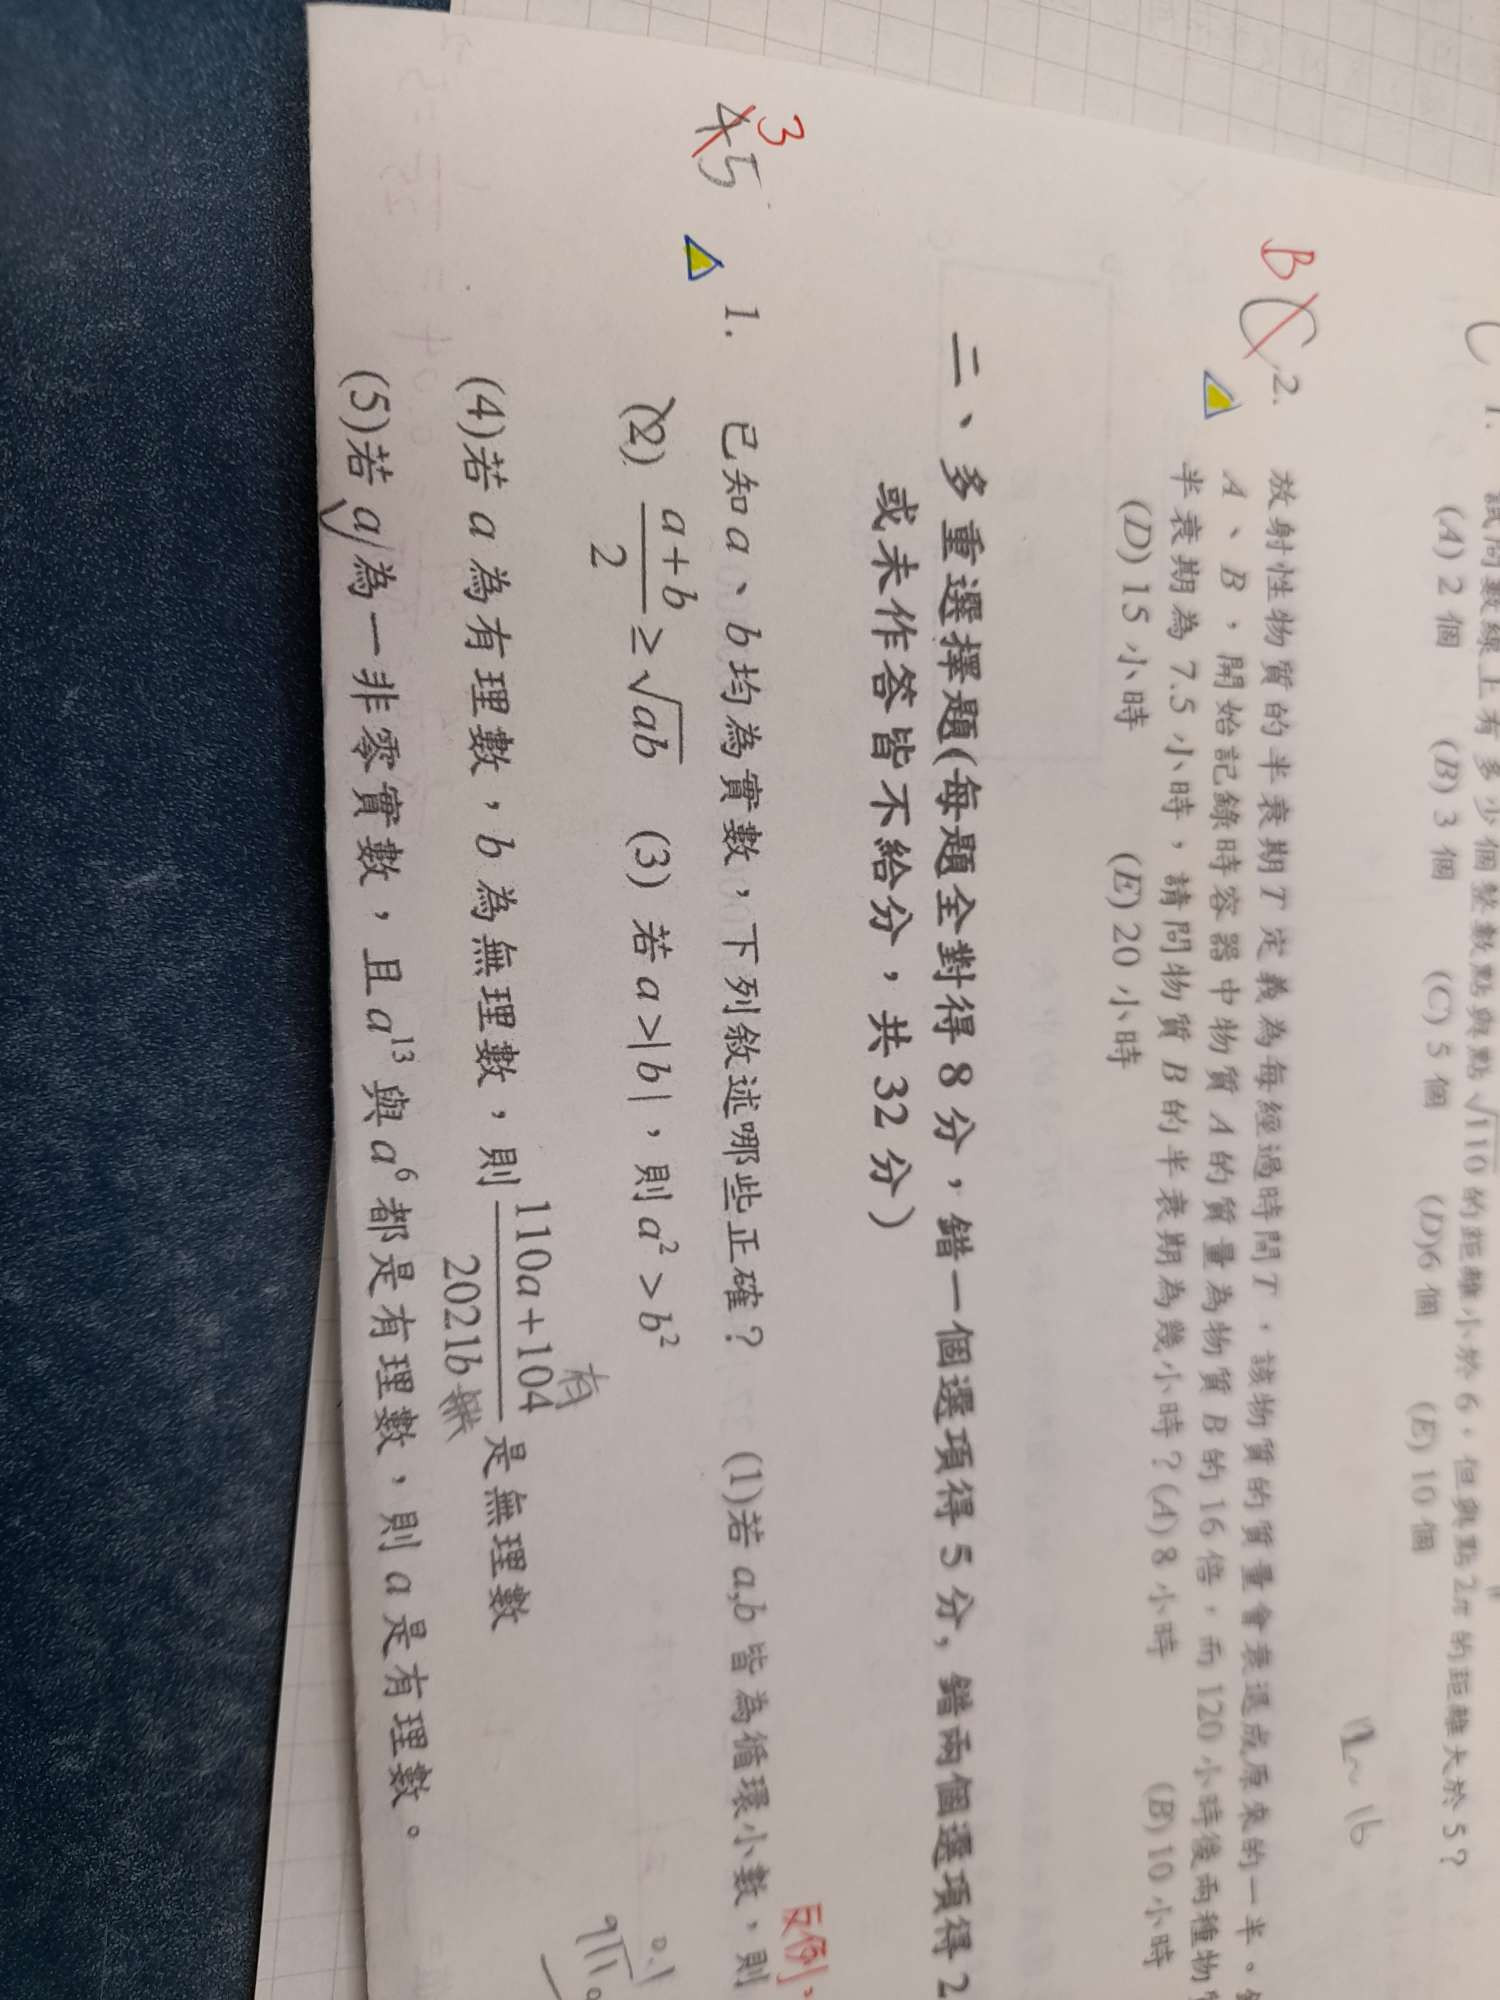 C 1. 試問數線上有多少個整數點與點√110的距離小於6，但與點2π的距離大於5？
(A) 2 個 (B) 3 個 (C) 5 個 (D)6 個 (E) 10 個
12~16
B C 2. 放射性物質的半衰期T定義為每經過時間T，該物質的質量會衰退成原來的一半。
A、B，開始記錄時容器中物質A的質量為物質B的16倍，而120小時後兩種物
半衰期為7.5小時，請問物質B的半衰期為幾小時？(A) 8 小時 (B) 10 小時
(D) 15 小時 (E) 20 小時
二、多重選擇題(每題全對得8分，錯一個選項得5分, 錯兩個選項得2
或未作答皆不給分，共32分）
反例
3 45 1. 已知a、b均為實數，下列敘述哪些正確？ (1)若a,b皆為循環小數，則
(2) a+b/2 ≥ √ab (3) 若a>|b|，則a² > b²
0.1
有
(4)若a為有理數，b為無理數，則 110a+104/2021b 是無理數
無
(5)若a為一非零實數，且a¹³與a⁶都是有理數，則a是有理數。